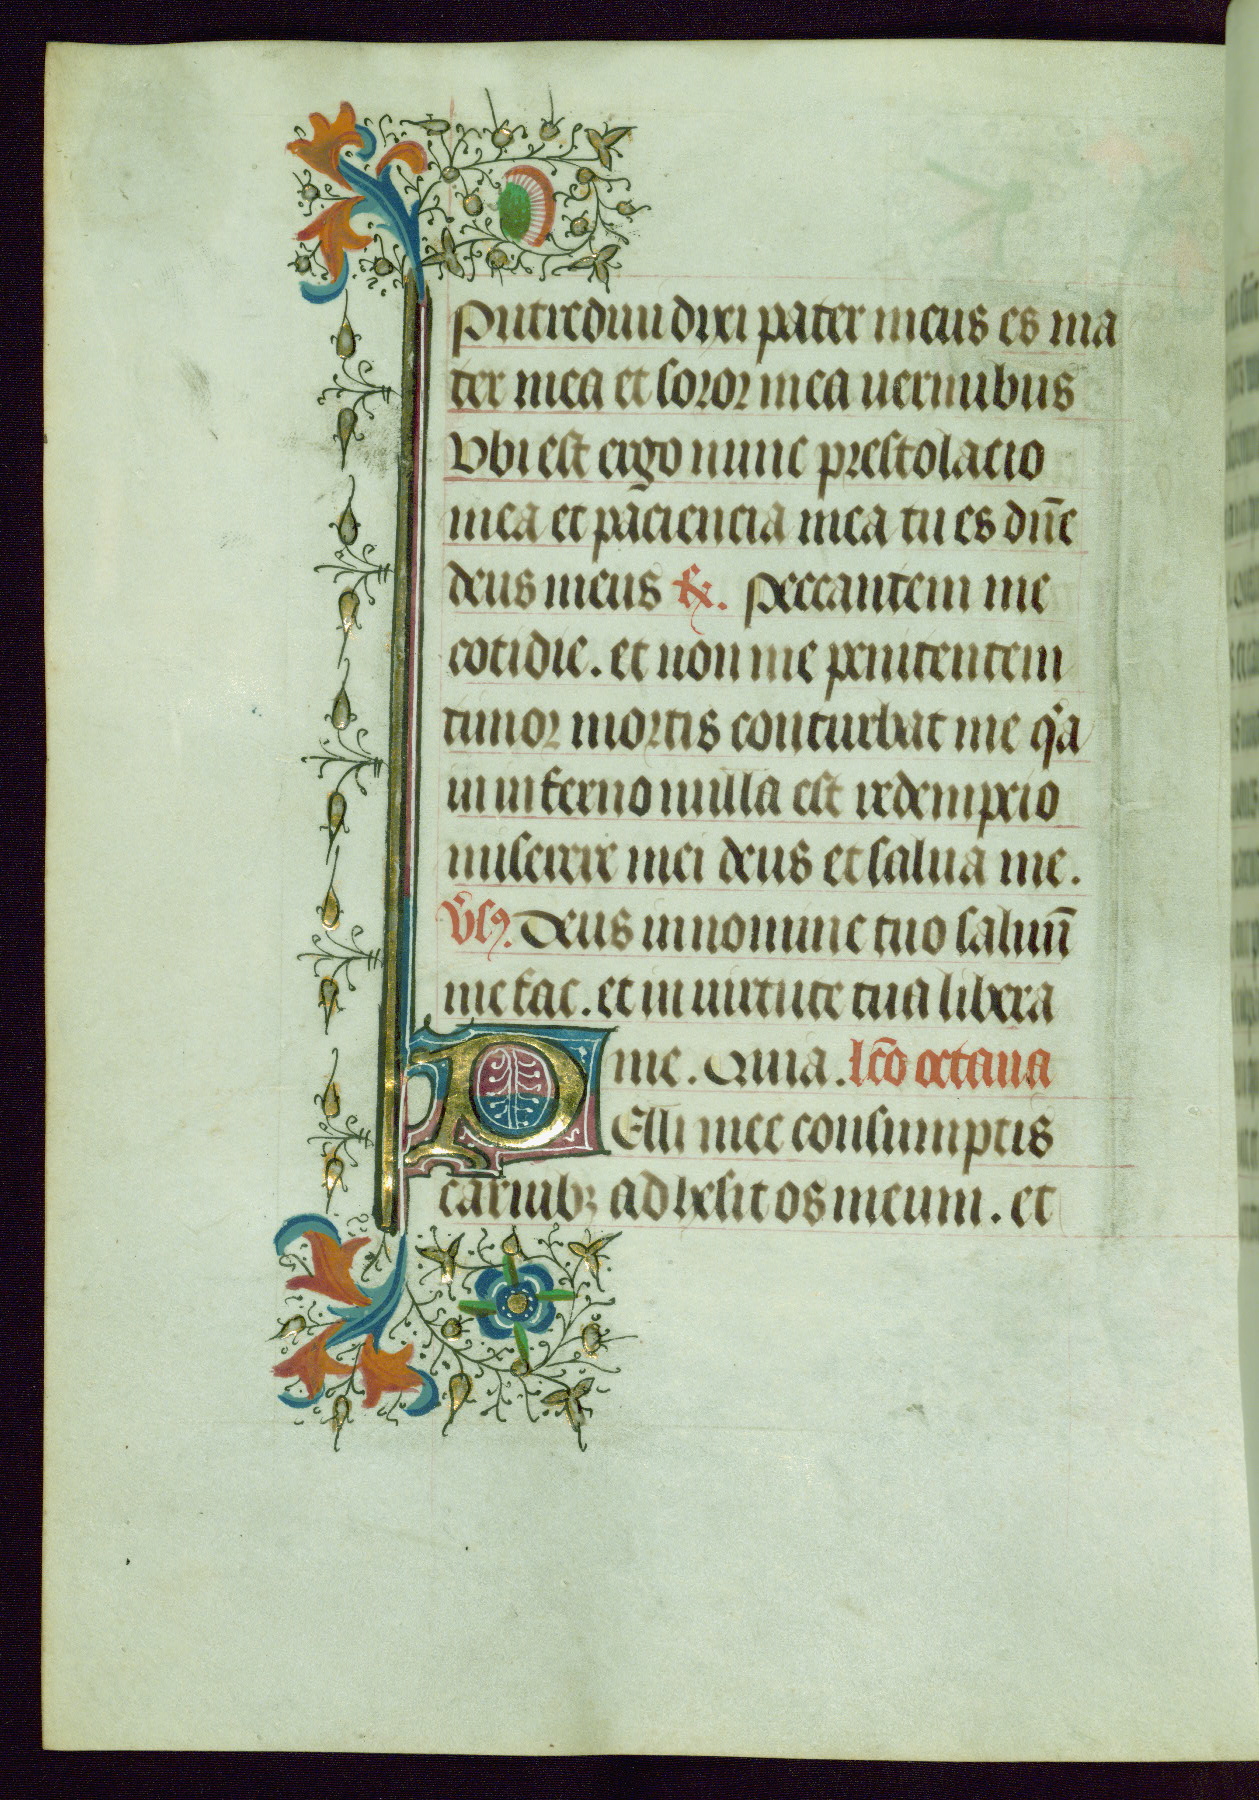 Putredini dixi pater meus es ma
ter mea et soror mea uermibus
Vbi est ergo nunc prestolacio
mea et paciencia mea tu es dn̄e
deus meus R̸. Peccantem me
cotidie. et non me penitentem
timor mortis conturbat me qͥa
in inferno nulla est redempcio
miserere mei deus et salua me.
v̄sꝰ. Deus in nomine tuo saluū
me fac. et in uirtute tua libera
me. Quia. lc̄o octaua
PElli mee consumptis
carnibꝫ adhesit os meum. et